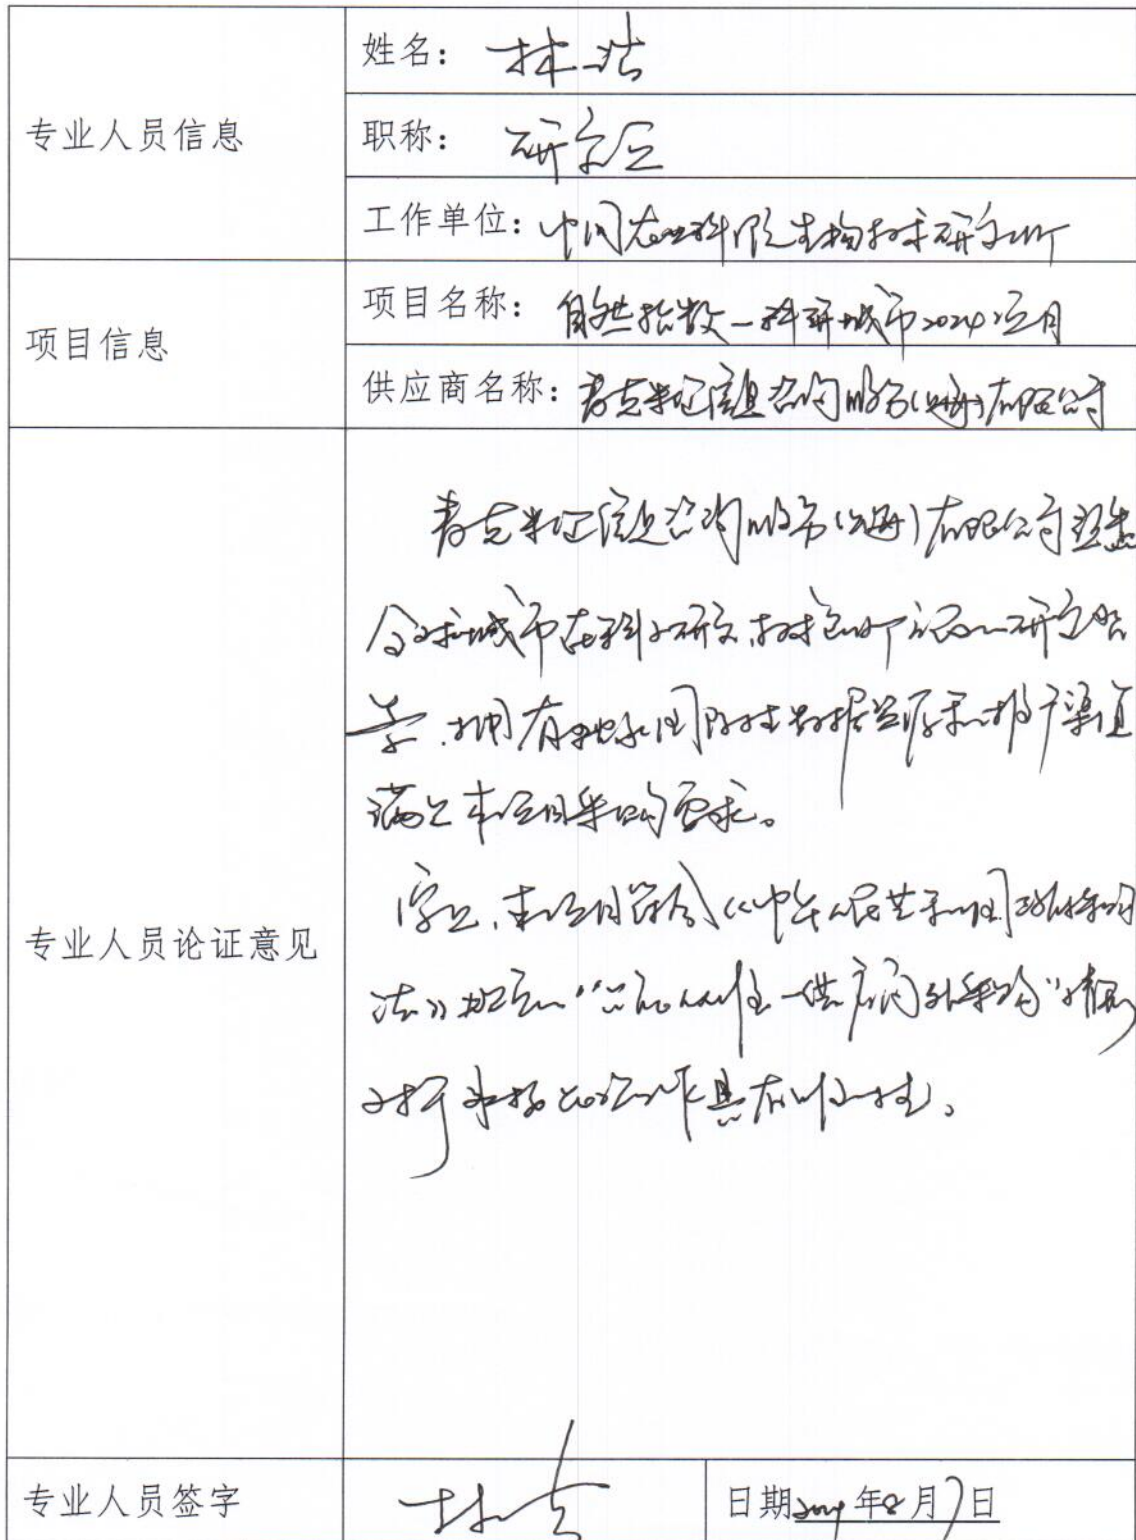 专业人员信息
姓名：林浩
职称：研究员
工作单位：中国农业科学院生物技术研究所
项目信息
项目名称：自然指数—科研城市2024项目
供应商名称：麦克米伦信息咨询服务(上海)有限公司
专业人员论证意见
麦克米伦信息咨询服务(上海)有限公司
全球城市在科学研究、技术
拥有 国际性数据资源和推广渠道
满足本项目采购要求。
综上，本项目符合《中华人民共和国政府采购
法》规定的“只能从唯一供应商处采购”情形
具有唯一性。
专业人员签字
日期2024年8月7日